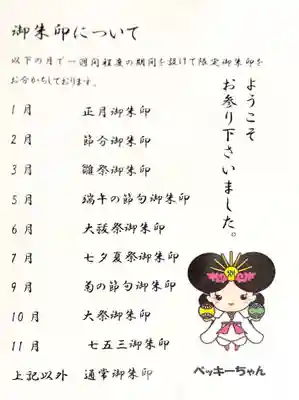 御朱印について
以下の月で一週間程度の期間を設けて限定御朱印を
お分かちしております。
1月 正月御朱印
2月 節分御朱印
3月 雛祭御朱印
5月 端午の節句御朱印
6月 大祓祭御朱印
7月 七夕夏祭御朱印
9月 菊の節句御朱印
10月 大祭御朱印
11月 七五三御朱印
上記以外 通常御朱印
ようこそ
お参り下さいました。
ベッキーちゃん